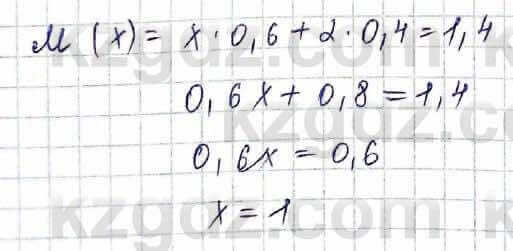 M (x) = x · 0,6 + 2 · 0,4 = 1,4
0,6x + 0,8 = 1,4
0,6x = 0,6
x = 1
kzgdz.com